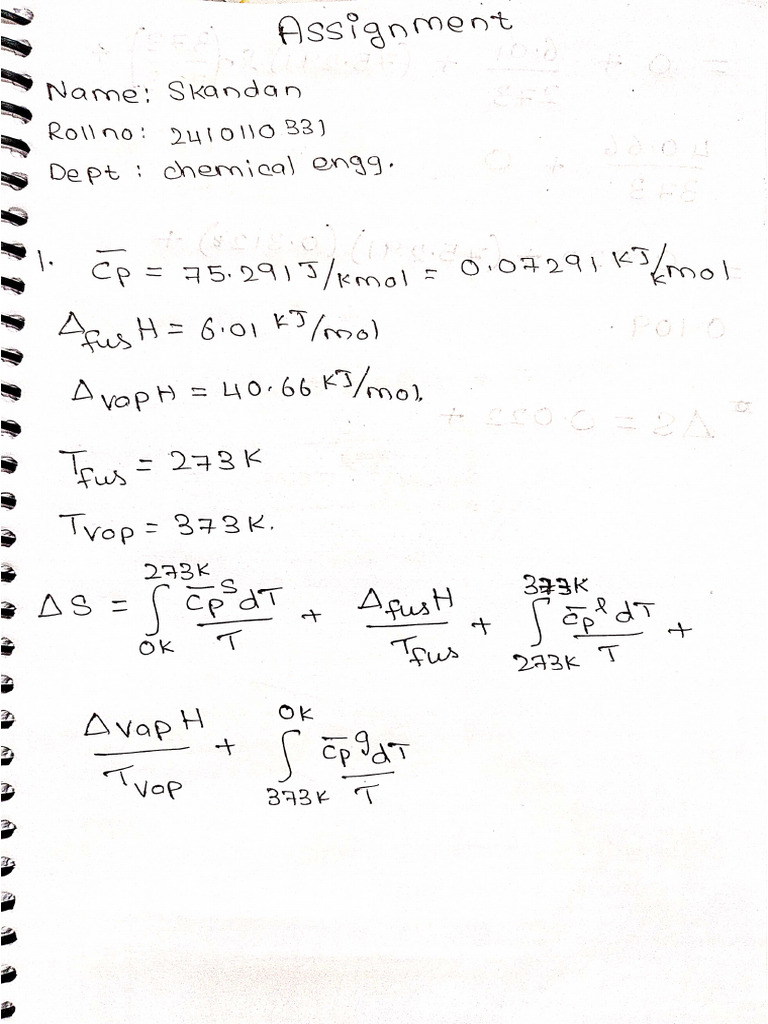 Assignment
Name: Skandan
Roll no: 2410110331
Dept: chemical engg.
1. C̅p = 75.291 J/kmol = 0.07291 KJ/kmol
Δfus H = 6.01 KJ/mol
Δvap H = 40.66 KJ/mol.
Tfus = 273K
Tvap = 373K.
ΔS = ∫_{0K}^{273K} C̅p^s dT / T + Δfus H / Tfus + ∫_{273K}^{373K} C̅p^l dT / T +
Δvap H / Tvap + ∫_{373K}^{0K} C̅p^g dT / T